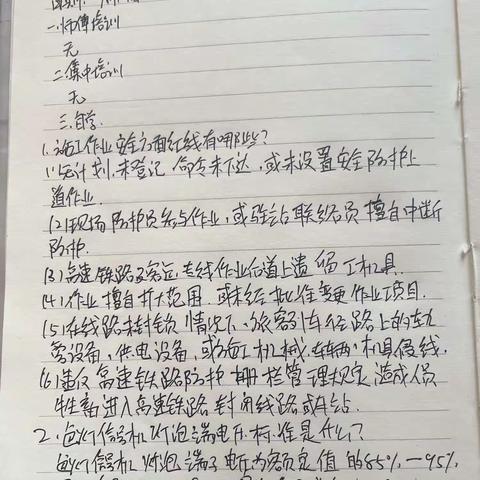 一.师傅培训
无
二.集中培训
无
三.自学.
1.施工作业安全方面红线有哪些?
(1)无计划,未登记,命令未下达,或未设置安全防护上
道作业.
(2)现场防护员参与作业,或驻站联络员擅自中断
防护.
(3)高速铁路及客运专线作业后道上遗留工机具.
(4)作业擅自扩大范围,或未经批准变更作业项目.
(5)在线路未封锁情况下,旅客列车径路上的
务设备,供电设备,或施工机械,车辆,机具侵线.
(6)违反高速铁路防护栅栏管理规定,造成人员
牲畜进入高速铁路封闭线路或车站.
2.色灯信号机灯泡端电压标准是什么?
色灯信号机灯泡端子电压为额定值的85%—95%.